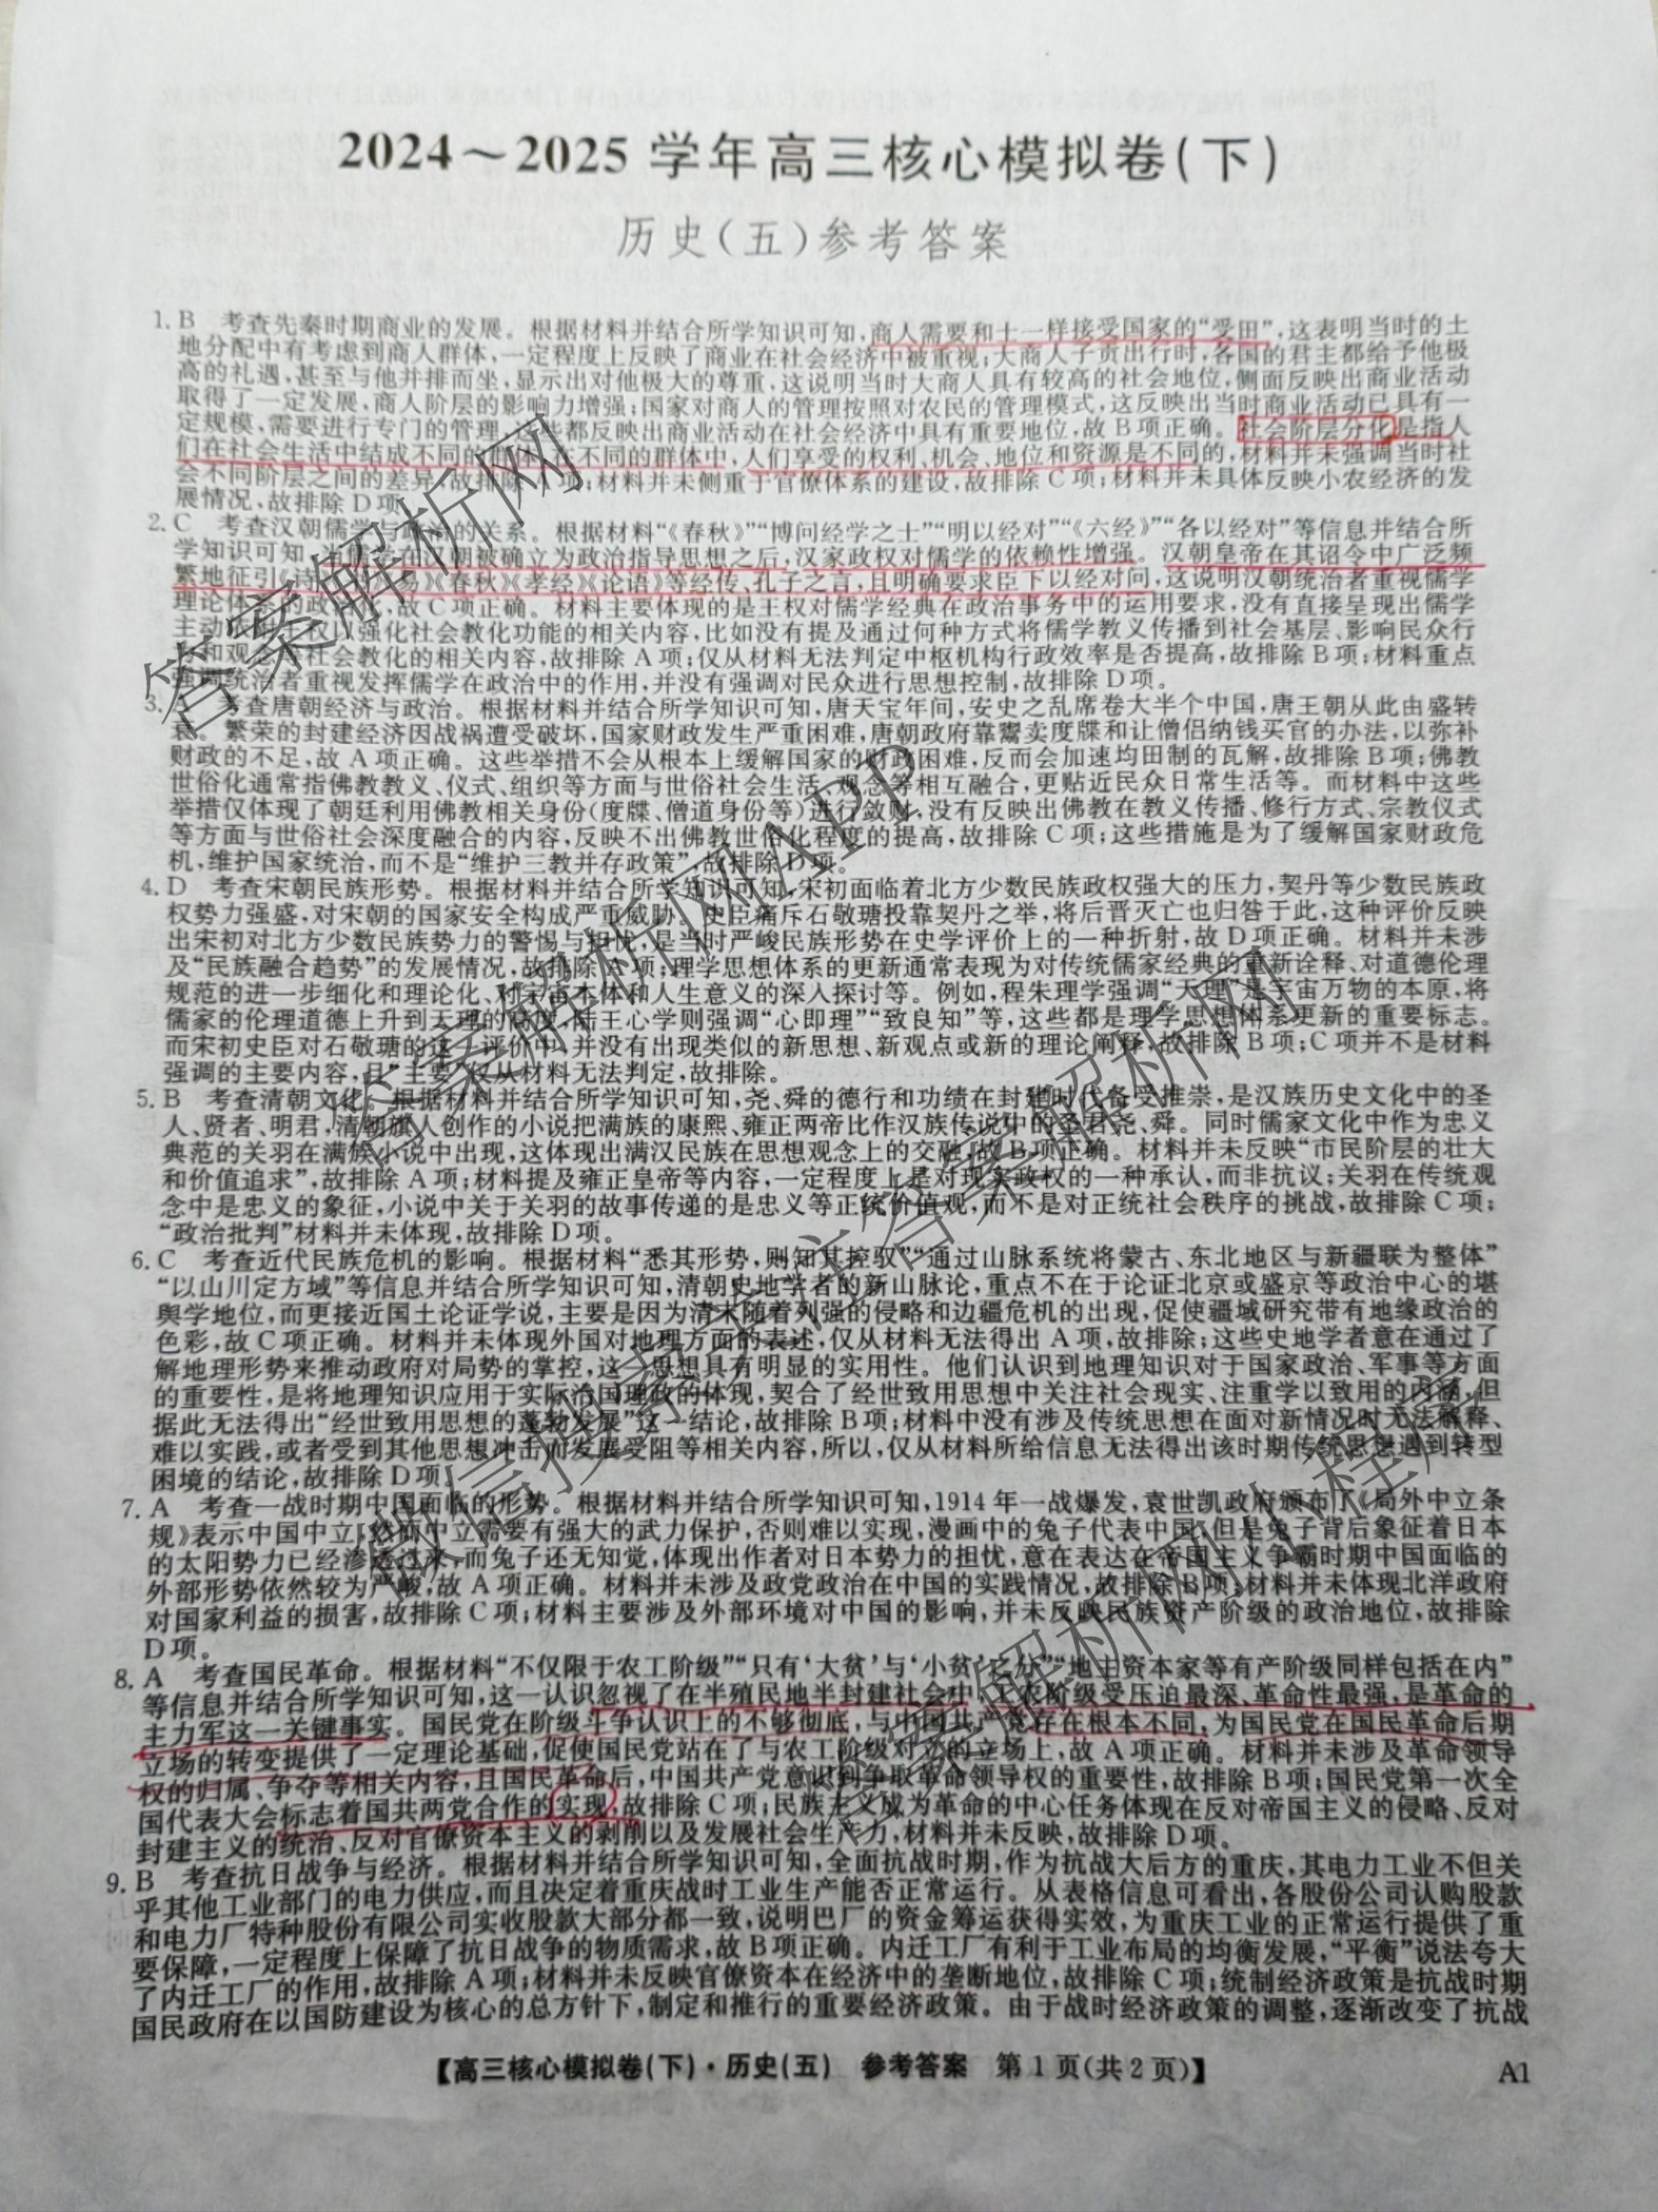 2024～2025 学年高三核心模拟卷(下)
历史(五)参考答案
1. B 考查先秦时期商业的发展。根据材料并结合所学知识可知,商人需要和士一样接受国家的“受田”,这表明当时的土
地分配中有考虑到商人群体,一定程度上反映了商业在社会经济中被重视;大商人子贡出行时,各国的君主都给予他极
高的礼遇,甚至与他并排而坐,显示出对他极大的尊重,这说明当时大商人具有较高的社会地位,侧面反映出商业活动
取得了一定发展,商人阶层的影响力增强;国家对商人的管理按照对农民的管理模式,这反映出当时商业活动已具有一
定规模,需要进行专门的管理,这些都反映出商业活动在社会经济中具有重要地位,故 B 项正确。社会阶层分化是指人
们在社会生活中结成不同的群体,在不同的群体中,人们享受的权利、机会、地位和资源是不同的,材料并未强调当时社
会不同阶层之间的差异,故排除 A 项;材料并未侧重于官僚体系的建设,故排除 C 项;材料并未具体反映小农经济的发
展情况,故排除 D 项。
2. C 考查汉朝儒学与政治的关系。根据材料“《春秋》”“博问经学之士”“明以经对”“《六经》”“各以经对”等信息并结合所
学知识可知,当儒学在汉朝被确立为政治指导思想之后,汉家政权对儒学的依赖性增强。汉朝皇帝在其诏令中广泛频
繁地征引《诗》《易》《春秋》《孝经》《论语》等经传、孔子之言,且明确要求臣下以经对问,这说明汉朝统治者重视儒学
理论体系的政治化,故 C 项正确。材料主要体现的是王权对儒学经典在政治事务中的运用要求,没有直接呈现出儒学
主动依附王权以强化社会教化功能的相关内容,比如没有提及通过何种方式将儒学教义传播到社会基层、影响民众行
为和观念等社会教化的相关内容,故排除 A 项;仅从材料无法判定中枢机构行政效率是否提高,故排除 B 项;材料重点
强调统治者重视发挥儒学在政治中的作用,并没有强调对民众进行思想控制,故排除 D 项。
3. A 考查唐朝经济与政治。根据材料并结合所学知识可知,唐天宝年间,安史之乱席卷大半个中国,唐王朝从此由盛转
衰。繁荣的封建经济因战祸遭受破坏,国家财政发生严重困难,唐朝政府靠鬻卖度牒和让僧侣纳钱买官的办法,以弥补
财政的不足,故 A 项正确。这些举措不会从根本上缓解国家的财政困难,反而会加速均田制的瓦解,故排除 B 项;佛教
世俗化通常指佛教教义、仪式、组织等方面与世俗社会生活、观念等相互融合,更贴近民众日常生活等。而材料中这些
举措仅体现了朝廷利用佛教相关身份(度牒、僧道身份等)进行敛财,没有反映出佛教在教义传播、修行方式、宗教仪式
等方面与世俗社会深度融合的内容,反映不出佛教世俗化程度的提高,故排除 C 项;这些措施是为了缓解国家财政危
机,维护国家统治,而不是“维护三教并存政策”,故排除 D 项。
4. D 考查宋朝民族形势。根据材料并结合所学知识可知,宋初面临着北方少数民族政权强大的压力,契丹等少数民族政
权势力强盛,对宋朝的国家安全构成严重威胁。史臣痛斥石敬瑭投靠契丹之举,将后晋灭亡也归咎于此,这种评价反映
出宋初对北方少数民族势力的警惕与担忧,是当时严峻民族形势在史学评价上的一种折射,故 D 项正确。材料并未涉
及“民族融合趋势”的发展情况,故排除 A 项;理学思想体系的更新通常表现为对传统儒家经典的重新诠释、对道德伦理
规范的进一步细化和理论化、对宇宙本体和人生意义的深入探讨等。例如,程朱理学强调“天理”是宇宙万物的本原,将
儒家的伦理道德上升到天理的高度,陆王心学则强调“心即理”“致良知”等,这些都是理学思想体系更新的重要标志。
而宋初史臣对石敬瑭的这一评价中,并没有出现类似的新思想、新观点或新的理论阐释,故排除 B 项;C 项并不是材料
强调的主要内容,且“主要”仅从材料无法判定,故排除。
5. B 考查清朝文化。根据材料并结合所学知识可知,尧、舜的德行和功绩在封建时代备受推崇,是汉族历史文化中的圣
人、贤者、明君,清朝旗人创作的小说把满族的康熙、雍正两帝比作汉族传说中的圣君尧、舜。同时儒家文化中作为忠义
典范的关羽在满族小说中出现,这体现出满汉民族在思想观念上的交融,故 B 项正确。材料并未反映“市民阶层的壮大
和价值追求”,故排除 A 项;材料提及雍正皇帝等内容,一定程度上是对现实政权的一种承认,而非抗议;关羽在传统观
念中是忠义的象征,小说中关于关羽的故事传递的是忠义等正统价值观,而不是对正统社会秩序的挑战,故排除 C 项;
“政治批判”材料并未体现,故排除 D 项。
6. C 考查近代民族危机的影响。根据材料“悉其形势,则知其控驭”“通过山脉系统将蒙古、东北地区与新疆联为整体”
“以山川定方域”等信息并结合所学知识可知,清朝史地学者的新山脉论,重点不在于论证北京或盛京等政治中心的堪
舆学地位,而更接近国土论证学说,主要是因为清末随着列强的侵略和边疆危机的出现,促使疆域研究带有地缘政治的
色彩,故 C 项正确。材料并未体现外国对地理方面的表述,仅从材料无法得出 A 项,故排除;这些史地学者意在通过了
解地理形势来推动政府对局势的掌控,这一思想具有明显的实用性。他们认识到地理知识对于国家政治、军事等方面
的重要性,是将地理知识应用于实际治国理政的体现,契合了经世致用思想中关注社会现实、注重学以致用的内涵,但
据此无法得出“经世致用思想的蓬勃发展”这一结论,故排除 B 项;材料中没有涉及传统思想在面对新情况时无法解释、
难以实践,或者受到其他思想冲击而发展受阻等相关内容,所以,仅从材料所给信息无法得出该时期传统思想遇到转型
困境的结论,故排除 D 项。
7. A 考查一战时期中国面临的形势。根据材料并结合所学知识可知,1914 年一战爆发,袁世凯政府颁布了《局外中立条
规》表示中国中立,然而中立需要有强大的武力保护,否则难以实现,漫画中的兔子代表中国,但是兔子背后象征着日本
的太阳势力已经渗透过来,而兔子还无知觉,体现出作者对日本势力的担忧,意在表达在帝国主义争霸时期中国面临的
外部形势依然较为严峻,故 A 项正确。材料并未涉及政党政治在中国的实践情况,故排除 B 项;材料并未体现北洋政府
对国家利益的损害,故排除 C 项;材料主要涉及外部环境对中国的影响,并未反映民族资产阶级的政治地位,故排除
D 项。
8. A 考查国民革命。根据材料“不仅限于农工阶级”“只有‘大贫’与‘小贫’之分”“地主资本家等有产阶级同样包括在内”
等信息并结合所学知识可知,这一认识忽视了在半殖民地半封建社会中,工农阶级受压迫最深、革命性最强,是革命的
主力军这一关键事实。国民党在阶级斗争认识上的不够彻底,与中国共产党存在根本不同,为国民党在国民革命后期
立场的转变提供了一定理论基础,促使国民党站在了与农工阶级对立的立场上,故 A 项正确。材料并未涉及革命领导
权的归属、争夺等相关内容,且国民革命后,中国共产党意识到争取革命领导权的重要性,故排除 B 项;国民党第一次全
国代表大会标志着国共两党合作的实现,故排除 C 项;民族主义成为革命的中心任务体现在反对帝国主义的侵略、反对
封建主义的统治、反对官僚资本主义的剥削以及发展社会生产力,材料并未反映,故排除 D 项。
9. B 考查抗日战争与经济。根据材料并结合所学知识可知,全面抗战时期,作为抗战大后方的重庆,其电力工业不但关
乎其他工业部门的电力供应,而且决定着重庆战时工业生产能否正常运行。从表格信息可看出,各股份公司认购股款
和电力厂特种股份有限公司实收股款大部分都一致,说明巴厂的资金筹运获得实效,为重庆工业的正常运行提供了重
要保障,一定程度上保障了抗日战争的物质需求,故 B 项正确。内迁工厂有利于工业布局的均衡发展,“平衡”说法夸大
了内迁工厂的作用,故排除 A 项;材料并未反映官僚资本在经济中的垄断地位,故排除 C 项;统制经济政策是抗战时期
国民政府在以国防建设为核心的总方针下,制定和推行的重要经济政策。由于战时经济政策的调整,逐渐改变了抗战
【高三核心模拟卷(下)·历史(五) 参考答案 第 1 页(共 2 页)】 A1
答案解析网
答案解析网APP
微信搜索关注答案解析网
答案解析网小程序